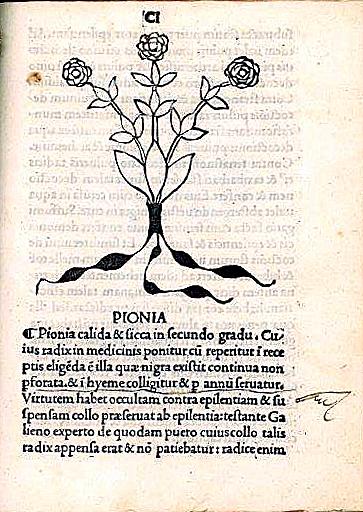 CI
PIONIA
¶ Pionia calida & sicca in secundo gradu. Cu/
ius radix in medicinis ponitur cũ reperitur ĩ rece
ptis eligẽda ẽ illa quæ nigra existit continua non
pforata. & ĩ hyeme colligitur & p annũ seruatur.
Virtutem habet occultam contra epilentiam & su
spensam collo præseruat ab epilentia: testante Ga
lieno experto de quodam puero cuius collo talis
radix appensa erat & nõ patiebatur: radice enim